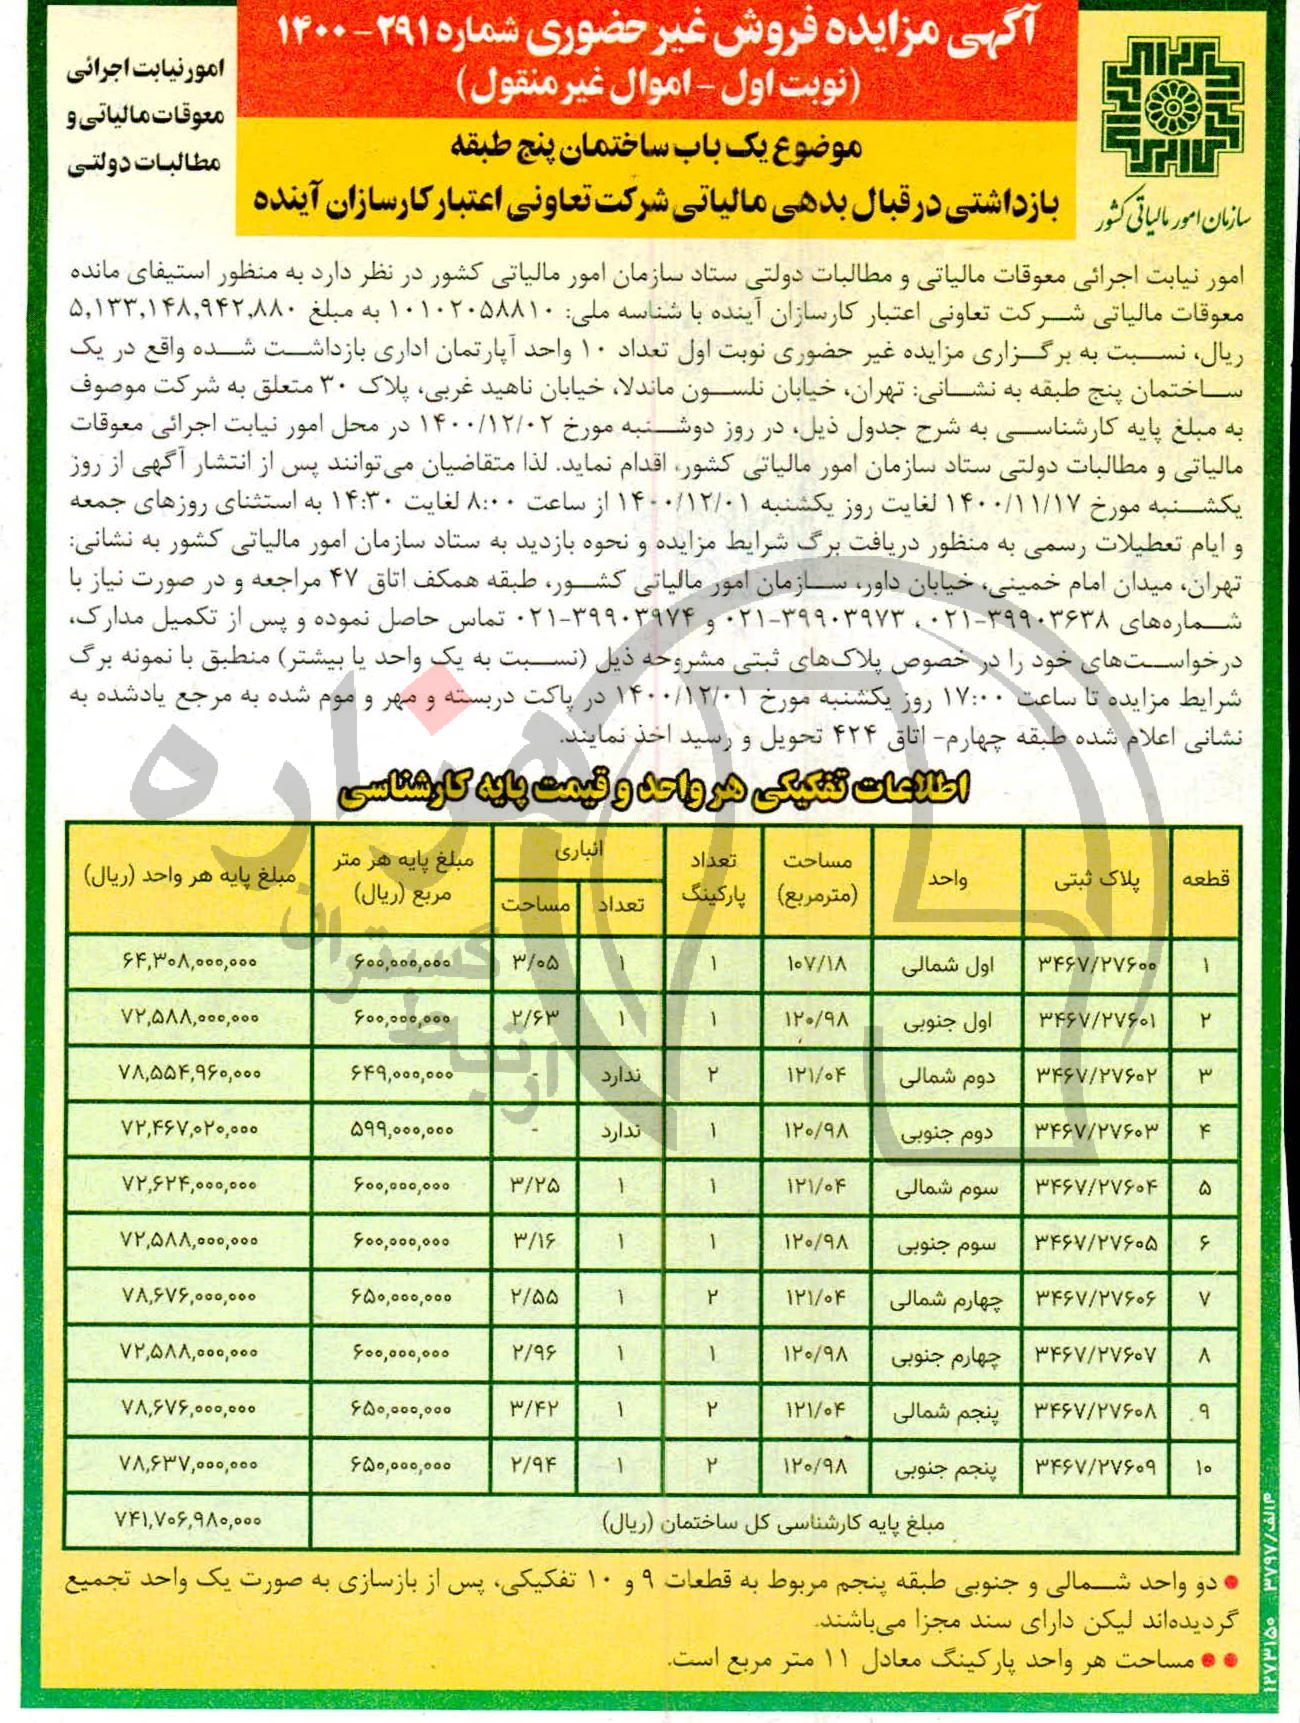 آگهی مزایده فروش غیر حضوری شماره ۲۹۱ - ۱۴۰۰
(نوبت اول - اموال غیر منقول)
موضوع یک باب ساختمان پنج طبقه
بازداشتی در قبال بدهی مالیاتی شرکت تعاونی اعتبار کارسازان آینده
سازمان امور مالیاتی کشور
امور نیابت اجرائی
معوقات مالیاتی و
مطالبات دولتی
امور نیابت اجرائی معوقات مالیاتی و مطالبات دولتی ستاد سازمان امور مالیاتی کشور در نظر دارد به منظور استیفای مانده
معوقات مالیاتی شرکت تعاونی اعتبار کارسازان آینده با شناسه ملی: ۱۰۱۰۲۰۵۸۸۱۰ به مبلغ ۵,۱۳۳,۱۴۸,۹۴۲,۸۸۰
ریال، نسبت به برگزاری مزایده غیر حضوری نوبت اول تعداد ۱۰ واحد آپارتمان اداری بازداشت شده واقع در یک
ساختمان پنج طبقه به نشانی: تهران، خیابان نلسون ماندلا، خیابان ناهید غربی، پلاک ۳۰ متعلق به شرکت موصوف
به مبلغ پایه کارشناسی به شرح جدول ذیل، در روز دوشنبه مورخ ۱۴۰۰/۱۲/۰۲ در محل امور نیابت اجرائی معوقات
مالیاتی و مطالبات دولتی ستاد سازمان امور مالیاتی کشور، اقدام نماید. لذا متقاضیان می‌توانند پس از انتشار آگهی از روز
یکشنبه مورخ ۱۴۰۰/۱۱/۱۷ لغایت روز یکشنبه ۱۴۰۰/۱۲/۰۱ از ساعت ۸:۰۰ لغایت ۱۴:۳۰ به استثنای روزهای جمعه
و ایام تعطیلات رسمی به منظور دریافت برگ شرایط مزایده و نحوه بازدید به ستاد سازمان امور مالیاتی کشور به نشانی:
تهران، میدان امام خمینی، خیابان داور، سازمان امور مالیاتی کشور، طبقه همکف اتاق ۴۷ مراجعه و در صورت نیاز با
شماره‌های ۳۹۹۰۳۶۳۸-۰۲۱ ، ۳۹۹۰۳۹۷۳-۰۲۱ و ۳۹۹۰۳۹۷۴-۰۲۱ تماس حاصل نموده و پس از تکمیل مدارک،
درخواست‌های خود را در خصوص پلاک‌های ثبتی مشروحه ذیل (نسبت به یک واحد یا بیشتر) منطبق با نمونه برگ
شرایط مزایده تا ساعت ۱۷:۰۰ روز یکشنبه مورخ ۱۴۰۰/۱۲/۰۱ در پاکت دربسته و مهر و موم شده به مرجع یادشده به
نشانی اعلام شده طبقه چهارم- اتاق ۴۲۴ تحویل و رسید اخذ نمایند.
اطلاعات تفکیکی هر واحد و قیمت پایه کارشناسی
قطعه پلاک ثبتی واحد مساحت (مترمربع) تعداد پارکینگ انباری تعداد مساحت مبلغ پایه هر متر مربع (ریال) مبلغ پایه هر واحد (ریال)
۱ ۳۴۶۷/۲۷۶۰۰ اول شمالی ۱۰۷/۱۸ ۱ ۱ ۳/۰۵ ۶۰۰,۰۰۰,۰۰۰ ۶۴,۳۰۸,۰۰۰,۰۰۰
۲ ۳۴۶۷/۲۷۶۰۱ اول جنوبی ۱۲۰/۹۸ ۱ ۱ ۲/۶۳ ۶۰۰,۰۰۰,۰۰۰ ۷۲,۵۸۸,۰۰۰,۰۰۰
۳ ۳۴۶۷/۲۷۶۰۲ دوم شمالی ۱۲۱/۰۴ ۲ ندارد - ۶۴۹,۰۰۰,۰۰۰ ۷۸,۵۵۴,۹۶۰,۰۰۰
۴ ۳۴۶۷/۲۷۶۰۳ دوم جنوبی ۱۲۰/۹۸ ۱ ندارد - ۵۹۹,۰۰۰,۰۰۰ ۷۲,۴۶۷,۰۲۰,۰۰۰
۵ ۳۴۶۷/۲۷۶۰۴ سوم شمالی ۱۲۱/۰۴ ۱ ۱ ۳/۲۵ ۶۰۰,۰۰۰,۰۰۰ ۷۲,۶۲۴,۰۰۰,۰۰۰
۶ ۳۴۶۷/۲۷۶۰۵ سوم جنوبی ۱۲۰/۹۸ ۱ ۱ ۳/۱۶ ۶۰۰,۰۰۰,۰۰۰ ۷۲,۵۸۸,۰۰۰,۰۰۰
۷ ۳۴۶۷/۲۷۶۰۶ چهارم شمالی ۱۲۱/۰۴ ۲ ۱ ۲/۵۵ ۶۵۰,۰۰۰,۰۰۰ ۷۸,۶۷۶,۰۰۰,۰۰۰
۸ ۳۴۶۷/۲۷۶۰۷ چهارم جنوبی ۱۲۰/۹۸ ۱ ۱ ۲/۹۶ ۶۰۰,۰۰۰,۰۰۰ ۷۲,۵۸۸,۰۰۰,۰۰۰
۹ ۳۴۶۷/۲۷۶۰۸ پنجم شمالی ۱۲۱/۰۴ ۲ ۱ ۳/۴۲ ۶۵۰,۰۰۰,۰۰۰ ۷۸,۶۷۶,۰۰۰,۰۰۰
۱۰ ۳۴۶۷/۲۷۶۰۹ پنجم جنوبی ۱۲۰/۹۸ ۲ ۱ ۲/۹۴ ۶۵۰,۰۰۰,۰۰۰ ۷۸,۶۳۷,۰۰۰,۰۰۰
مبلغ پایه کارشناسی کل ساختمان (ریال) ۷۴۱,۷۰۶,۹۸۰,۰۰۰
● دو واحد شمالی و جنوبی طبقه پنجم مربوط به قطعات ۹ و ۱۰ تفکیکی، پس از بازسازی به صورت یک واحد تجمیع
گردیده‌اند لیکن دارای سند مجزا می‌باشند.
●● مساحت هر واحد پارکینگ معادل ۱۱ متر مربع است.
م الف/۳۷۹۷
۱۲۷۳۱۵۰
هزاره
گستران
ارتباط